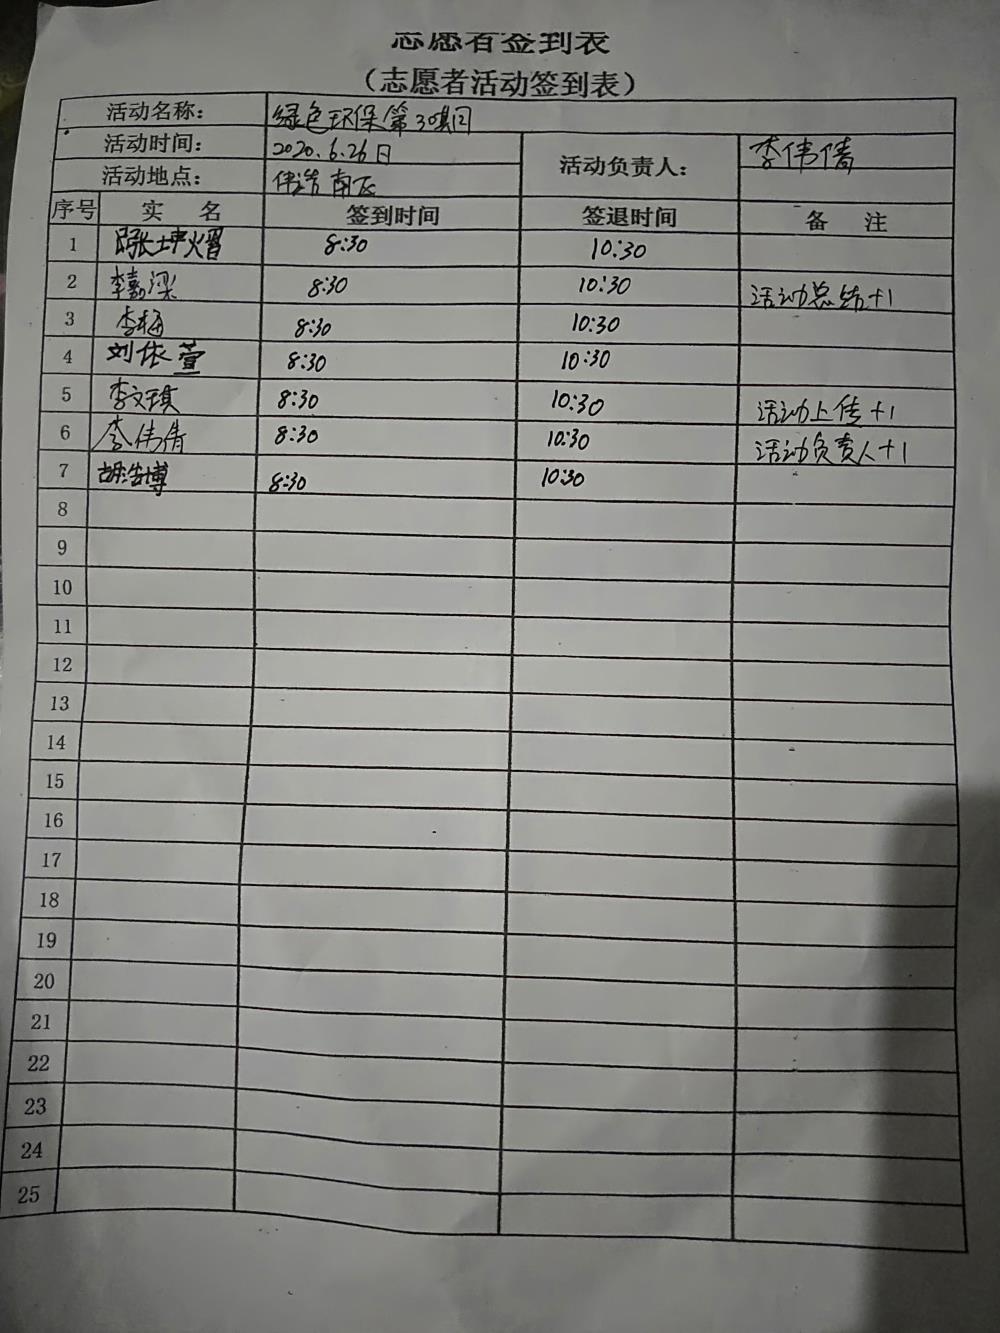 志愿者签到表
（志愿者活动签到表）
活动名称： 绿色环保第3项目
活动时间： 2020.6.26日 活动负责人： 李伟倩
活动地点：
序号 实 名 签到时间 签退时间 备 注
1 8:30 10:30
2 李嘉梁 8:30 10:30 活动总结+1
3 李梅 8:30 10:30
4 刘依萱 8:30 10:30
5 李文琪 8:30 10:30 活动上传+1
6 李伟倩 8:30 10:30 活动负责人+1
7 胡浩博 8:30 10:30
8
9
10
11
12
13
14
15
16
17
18
19
20
21
22
23
24
25